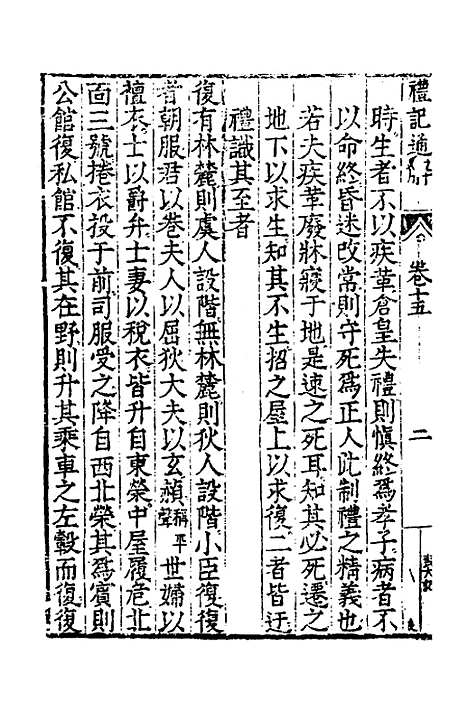 禮記通解
卷十五
二
時生者不以疾革倉皇失禮則愼終爲孝子病者不
以命終昏迷改常則守死爲正人此制禮之精義也
若夫疾革廢牀寢于地是速之死耳知其必死遷之
地下以求生知其不生招之屋上以求復二者皆迂
禮識其至者
復有林麓則虞人設階無林麓則狄人設階小臣復復
者朝服君以卷夫人以屈狄大夫以玄頳稱平聲世婦以
襢衣士以爵弁士妻以稅衣皆升自東榮中屋履危北
面三號捲衣投于前司服受之降自西北榮其爲賓則
公館復私館不復其在野則升其乘車之左轂而復復